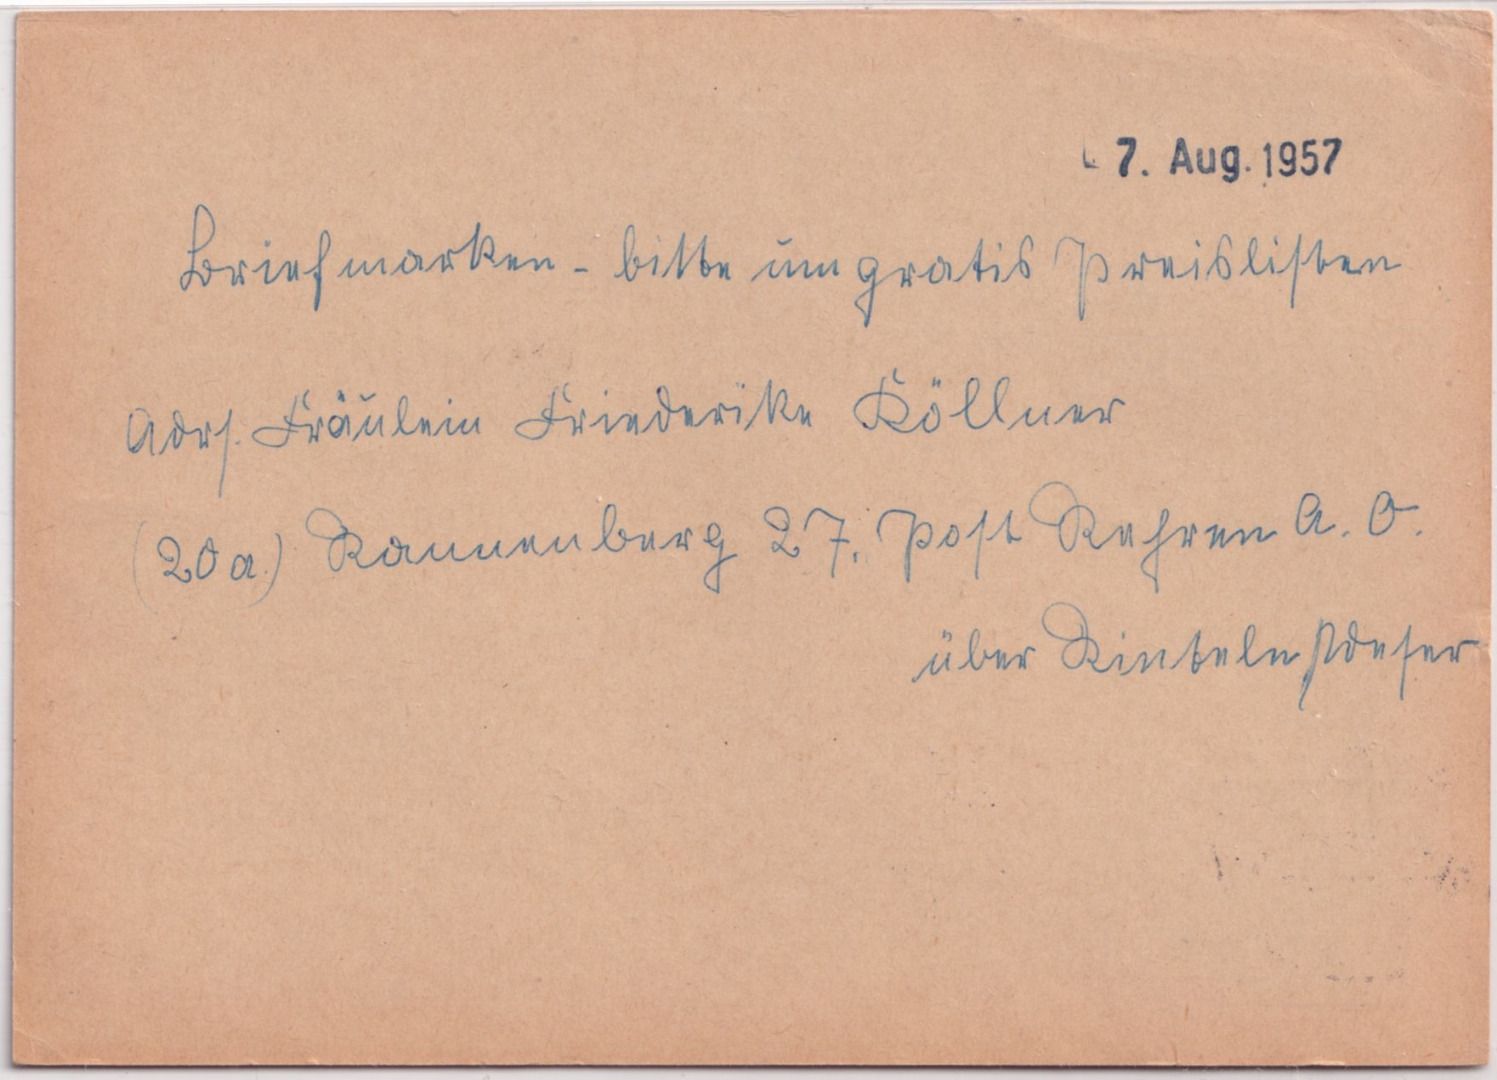 - 7. Aug. 1957
Briefmarken - bitte um gratis Preislisten
Adrs. Fräulein Friederike Köllner
(20a) Rannenberg 27. Post Rehren A. O.
über Rinteln/Weser